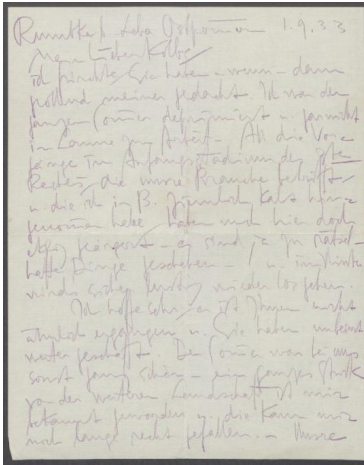 Rumbke b. Leba Ostpommern 1.9.33
Mein lieber Kolbe
ich fürchte, Sie haben – wenn – dann
grollend meiner gedacht. Ich war den
ganzen Sommer deprimiert u. garnicht
in Laune zur Arbeit. – All die Vor-
gänge im Anfangsstadium des
Reiches, die unsere Branche betrifft,
u. die ich in B. ziemlich kalt
genommen habe, haben mich hier doch
– es sind ja zu rätsel-
hafte Dinge geschehen – u.
wieder losgehen.
Ich hoffe sehr, es ist Ihnen nicht
ähnlich ergangen u. Sie haben
weiter geschafft. Der Sommer war bei uns
sonst ganz schön – ein ganzes Stück
von der weiteren Landschaft ist mir
bekannt geworden u. die kann mir
noch lange recht gefallen. – Unsre